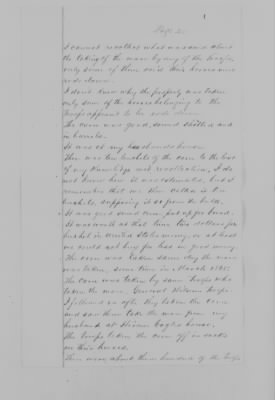 Page 2.
I cannot recollect what was said about
the taking of the mare by any of the troops,
only some of them said their horses were
rode down.
I don't know why the property was taken
only some of the horses belonging to the
troops appeared to be rode down.
The corn was good, sound shelled and
in barrels.
It was at my husbands house.
There was ten bushels of the corn to the best
of my knowledge and recollection, I do
not know how it was estimated, but I
remember that we then called it ten
bushels, supposing it so from the bulk.
It was good sound corn, put up for bread.
It was worth at that time two dollars per
bushel in United States money, or at least
we could not buy for less in good money.
The corn was taken same day the mare
was taken, some time in March 1865.
The corn was taken by same troops who
taken the mare, General Wilsons troops
I followed on after they taken the corn
and saw them take the mare from my
husband at Hiram house.
The troops taken the corn off in sacks
on their horses.
There were about three hundred of the troops